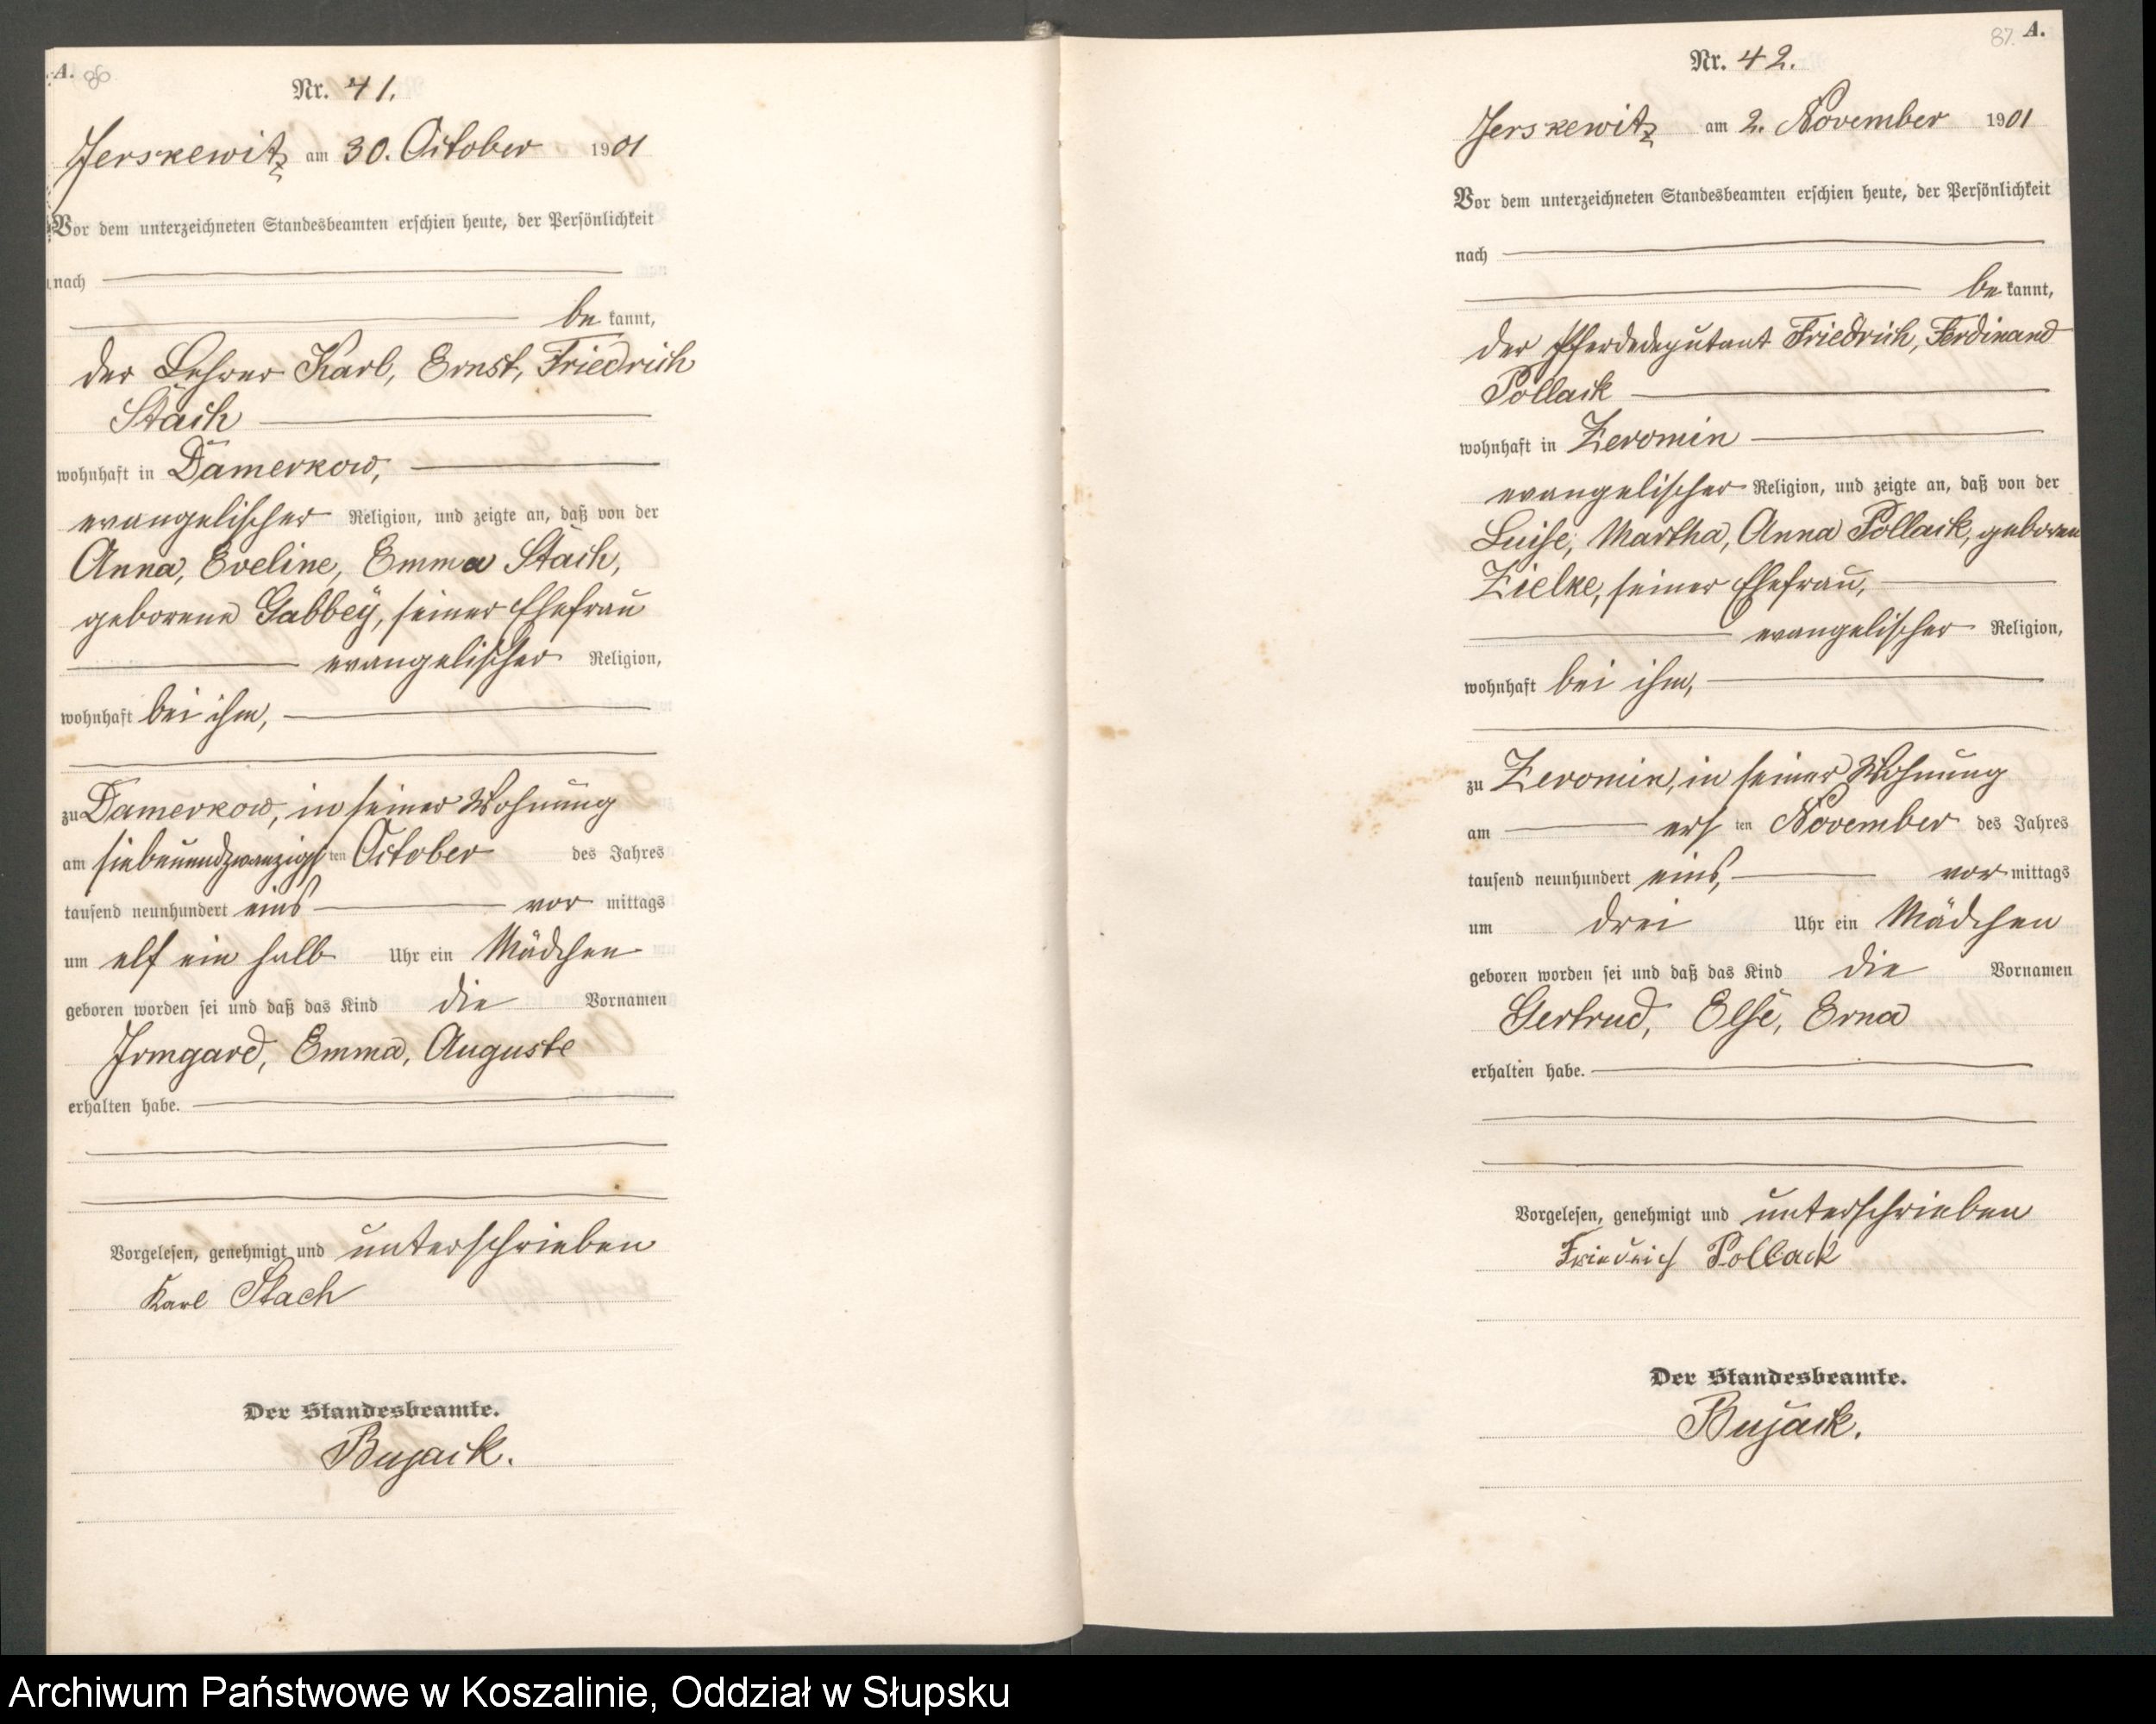 A. 86
Nr. 41.
Jerskewitz am 30. October 1901
Vor dem unterzeichneten Standesbeamten erschien heute, der Persönlichkeit
nach
be kannt,
der Lehrer Karl, Ernst, Friedrich
Stach
wohnhaft in Damerkow,
evangelischer Religion, und zeigte an, daß von der
Anna, Eveline, Emma Stach,
geborene Gabbey, seiner Ehefrau
evangelischer Religion,
wohnhaft bei ihm,
zu Damerkow, in seiner Wohnung
am siebenundzwanzigsten October des Jahres
tausend neunhundert eins vor mittags
um elf ein halb Uhr ein Mädchen
geboren worden sei und daß das Kind die Vornamen
Irmgard, Emma, Auguste
erhalten habe.
Vorgelesen, genehmigt und unterschrieben
Karl Stach
Der Standesbeamte.
Bujack.
87. A.
Nr. 42.
Jerskewitz am 2. November 1901
Vor dem unterzeichneten Standesbeamten erschien heute, der Persönlichkeit
nach
be kannt,
der Pferdedeputant Friedrich, Ferdinand
Pollack
wohnhaft in Zeromin
evangelischer Religion, und zeigte an, daß von der
Luise, Martha, Anna Pollack, geboren
Zielke, seiner Ehefrau,
evangelischer Religion,
wohnhaft bei ihm,
zu Zeromin, in seiner Wohnung
am ersten November des Jahres
tausend neunhundert eins, vor mittags
um drei Uhr ein Mädchen
geboren worden sei und daß das Kind die Vornamen
Gertrud, Else, Erna
erhalten habe.
Vorgelesen, genehmigt und unterschrieben
Friedrich Pollack
Der Standesbeamte.
Bujack.
Archiwum Państwowe w Koszalinie, Oddział w Słupsku